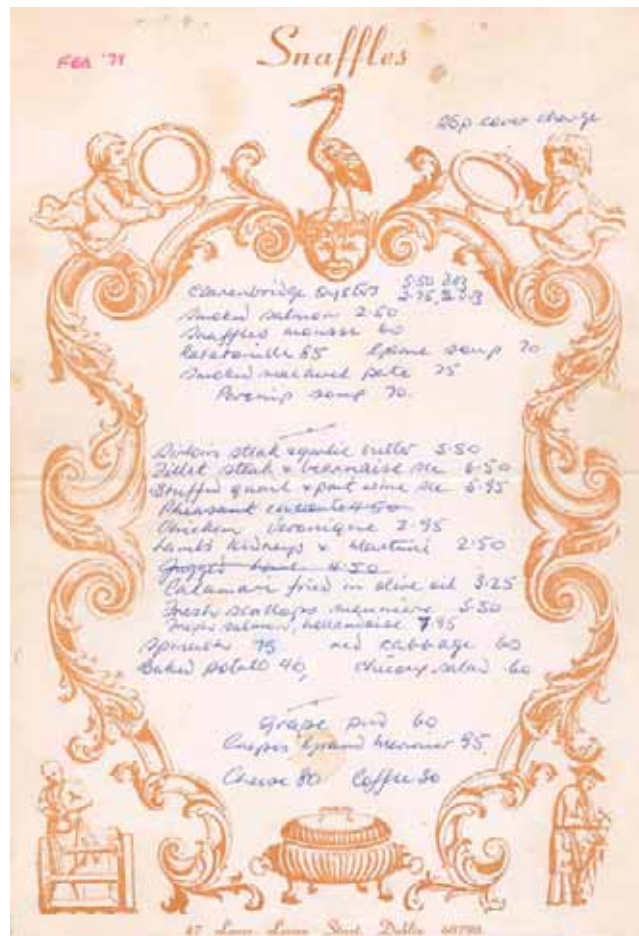 Snaffles
FEB '79
25p cover charge
Clarenbridge oysters 5.50 doz
2.75 ½ doz
Smoked salmon 2.50
Snaffles mousse 60
Ratatouille 85 Game soup 70
Smoked mackerel pate 75
Parsnip soup 70.
Sirloin steak + garlic butter 5.50
Fillet steak + bearnaise sce 6.50
Stuffed quail + port wine sce 5.95
Pheasant 4.50
Chicken Veronique 2.95
Lambs Kidneys + Martini 2.50
Jugged hare 4.50
Calamari fried in olive oil 3.25
Fresh scallops meuniere 5.50
Fresh salmon, hollandaise 7.95
Spinach 75 red cabbage 60
Baked potato 40, Chicory salad 60
Grape pud 60
Crepes Grand Marnier 95
Cheese 80 Coffee 50
47 Lower Leeson Street, Dublin